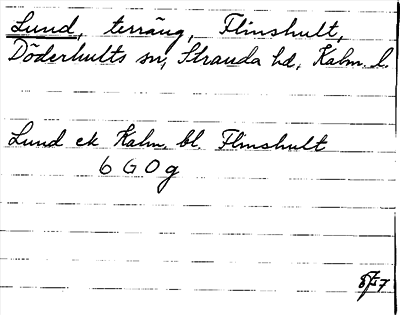 Lund, terräng, Flinshult,
Döderhults sn, Stranda hd, Kalm. l.
Lund ek Kalm. bl. Flinshult
6 G O g